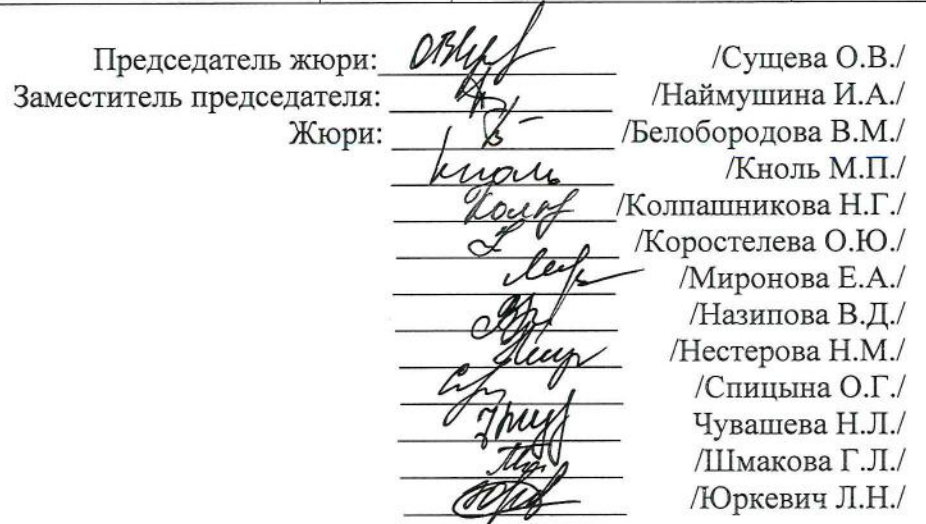 Председатель жюри: /Сущева О.В./
Заместитель председателя: /Наймушина И.А./
Жюри: /Белобородова В.М./
кноль /Кноль М.П./
/Колпашникова Н.Г./
/Коростелева О.Ю./
/Миронова Е.А./
/Назипова В.Д./
/Нестерова Н.М./
/Спицына О.Г./
Чувашева Н.Л./
/Шмакова Г.Л./
/Юркевич Л.Н./